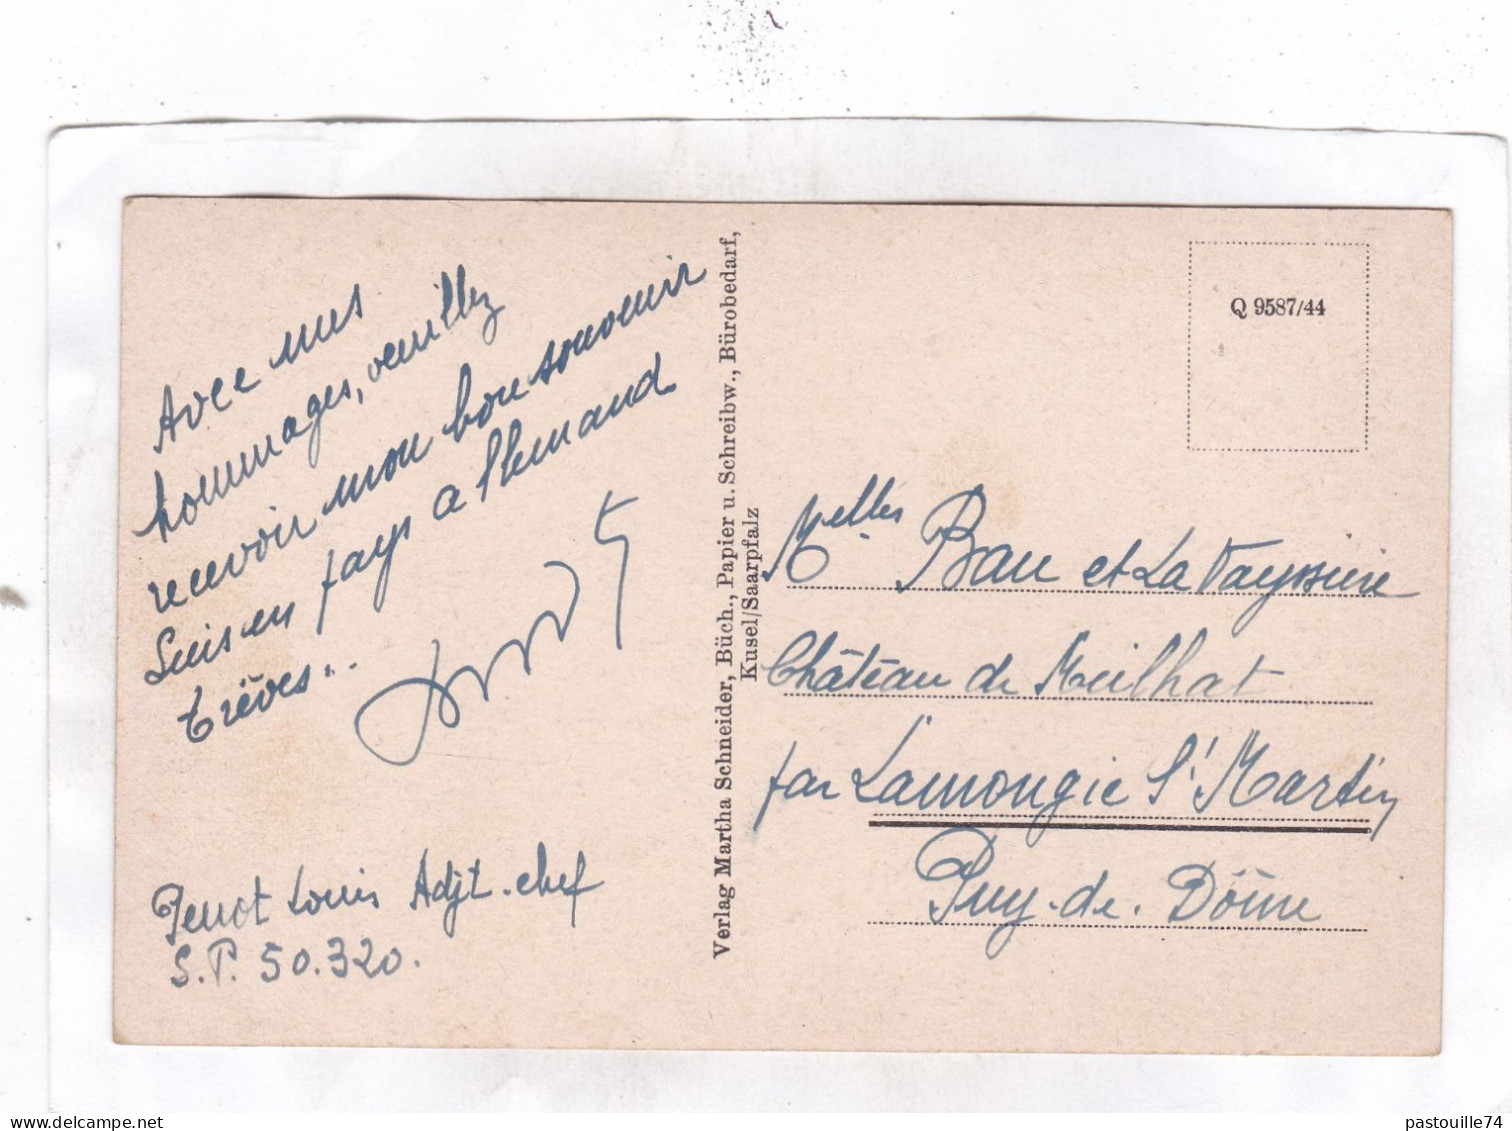 Avec mes
hommages, veuillez
recevoir mon bon souvenir
Suis en pays allemand
Trèves...
Penot Louis Adjt-chef
S.P. 50.320.
Verlag Martha Schneider, Büch., Papier u. Schreibw., Bürobedarf,
Kusel/Saarpfalz
Q 9587/44
Melles Bau et La Vayssière
Château de Meilhat
par Lamongie St Martin
Puy-de-Dôme
pastouille74